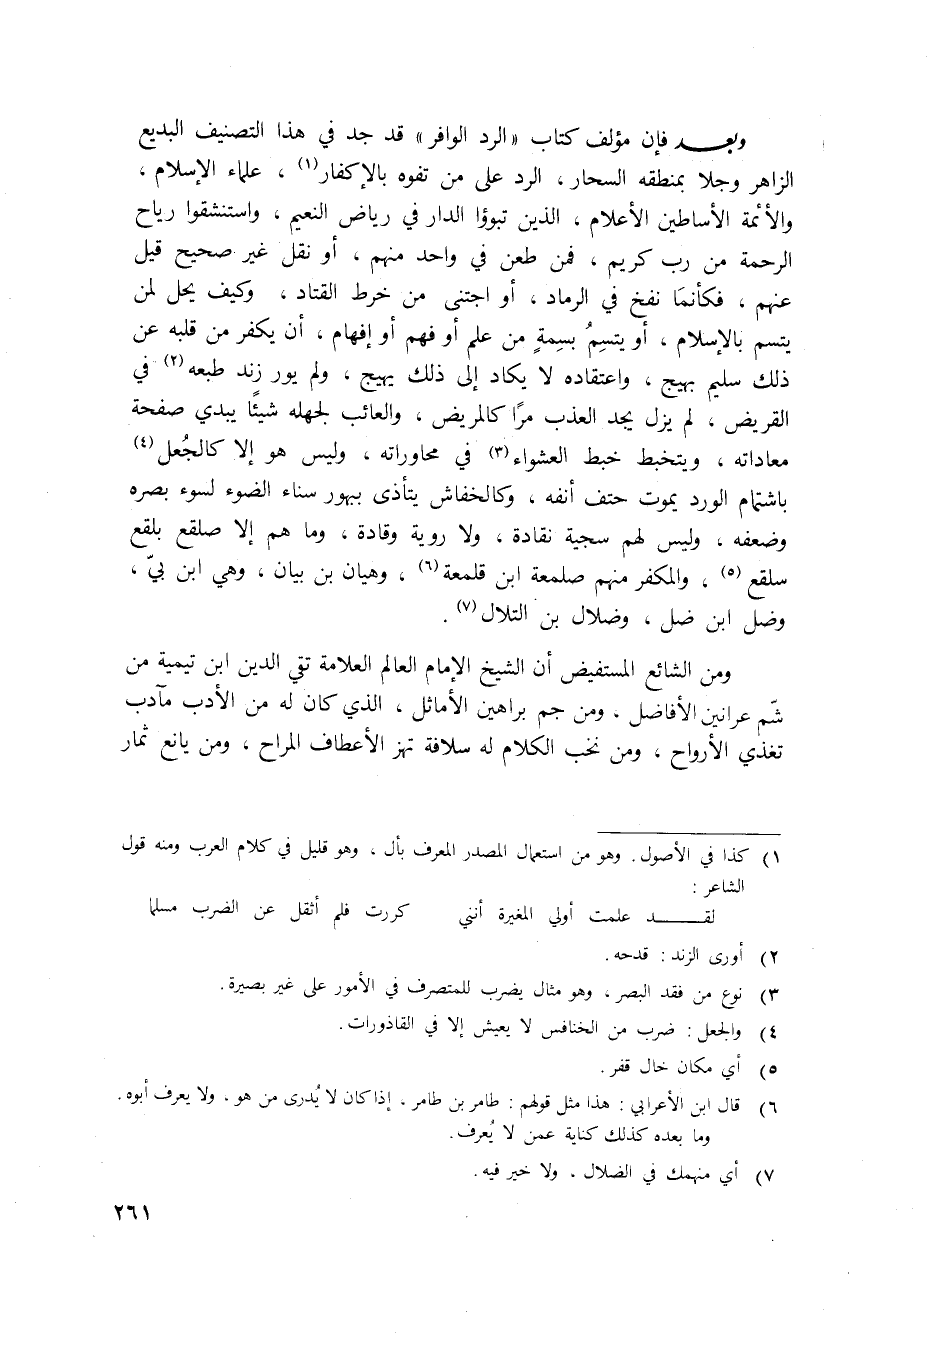 وبعـــد فإن مؤلف كتاب «الرد الوافر» قد جد في هذا التصنيف البديع
الزاهر وجلا بمنطقه السحار ، الرد على من تفوه بالإكفار(١) ، علماء الإسلام ،
والأئمة الأساطين الأعلام ، الذين تبوؤا الدار في رياض النعيم ، واستنشقوا رياح
الرحمة من رب كريم ، فمن طعن في واحد منهم ، أو نقل غير صحيح قيل
عنهم ، فكأنما نفخ في الرماد ، أو اجتنى من خرط القتاد ، وكيف يحل لمن
يتسم بالإسلام ، أو يتسِمُ بسِمةٍ من علم أو فهم أو إفهام ، أن يكفر من قلبه عن
ذلك سليم بهيج ، واعتقاده لا يكاد إلى ذلك يهيج ، ولم يور زند طبعه(٢) في
القريض ، لم يزل يجد العذب مرًا كالمريض ، والعائب لجهله شيئًا يبدي صفحة
معاداته ، ويتخبط خبط العشواء(٣) في محاوراته ، وليس هو إلا كالجُعل(٤)
باشتمام الورد يموت حتف أنفه ، وكالخفاش يتأذى ببهور سناء الضوء لسوء بصره
وضعفه ، وليس لهم سجية نقادة ، ولا روية وقادة ، وما هم إلا صلقع بلقع
سلقع(٥) ، والمكفر منهم صلمعة ابن قلمعة(٦) ، وهيان بن بيان ، وهي ابن بيّ ،
وضل ابن ضل ، وضلال بن التلال(٧) .
ومن الشائع المستفيض أن الشيخ الإمام العالم العلامة تقي الدين ابن تيمية من
شّم عرانين الأفاضل ، ومن جم براهين الأماثل ، الذي كان له من الأدب مآدب
تغذي الأرواح ، ومن نخب الكلام له سلافة تهز الأعطاف المراح ، ومن يانع ثمار
١) كذا في الأصول . وهو من استعمال المصدر المعرف بأل ، وهو قليل في كلام العرب ومنه قول
الشاعر :
لقـــد علمت أولي المغيرة أنني كررت فلم أثقل عن الضرب مسلما
٢) أورى الزند : قدحه .
٣) نوع من فقد البصر ، وهو مثال يضرب للمتصرف في الأمور على غير بصيرة .
٤) والجعل : ضرب من الخنافس لا يعيش إلا في القاذورات .
٥) أي مكان خال قفر .
٦) قال ابن الأعرابي : هذا مثل قولهم : طامر بن طامر ، إذا كان لا يُدرى من هو ، ولا يعرف أبوه .
وما بعده كذلك كناية عمن لا يُعرف .
٧) أي منهمك في الضلال ، ولا خير فيه .
٢٦١